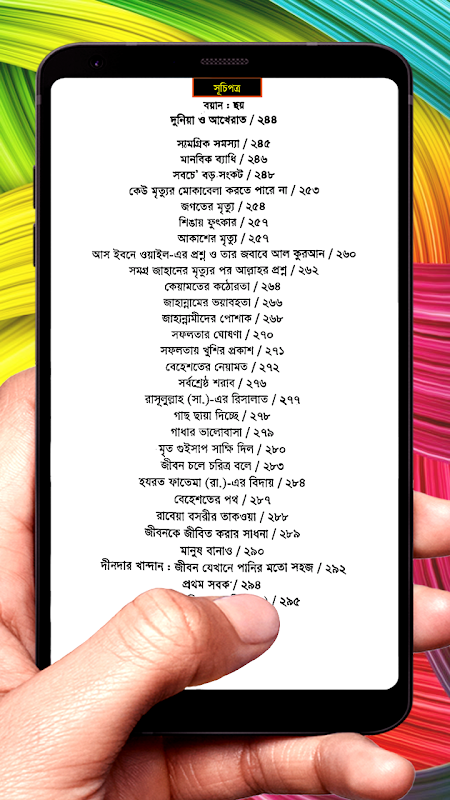 সূচিপত্র
বয়ান : ছয়
দুনিয়া ও আখেরাত / ২৪৪
সামগ্রিক সমস্যা / ২৪৫
মানবিক ব্যাধি / ২৪৬
সবচে' বড় সংকট / ২৪৮
কেউ মৃত্যুর মোকাবেলা করতে পারে না / ২৫৩
জগতের মৃত্যু / ২৫৪
শিঙায় ফুৎকার / ২৫৭
আকাশের মৃত্যু / ২৫৭
আস ইবনে ওয়াইল-এর প্রশ্ন ও তার জবাবে আল কুরআন / ২৬০
সমগ্র জাহানের মৃত্যুর পর আল্লাহর প্রশ্ন / ২৬২
কেয়ামতের কঠোরতা / ২৬৪
জাহান্নামের ভয়াবহতা / ২৬৬
জাহান্নামীদের পোশাক / ২৬৮
সফলতার ঘোষণা / ২৭০
সফলতায় খুশির প্রকাশ / ২৭১
বেহেশতের নেয়ামত / ২৭২
সর্বশ্রেষ্ঠ শরাব / ২৭৬
রাসূলুল্লাহ (সা.)-এর রিসালাত / ২৭৭
গাছ ছায়া দিচ্ছে / ২৭৮
গাধার ভালোবাসা / ২৭৯
মৃত গুইসাপ সাক্ষি দিল / ২৮০
জীবন চলে চরিত্র বলে / ২৮৩
হযরত ফাতেমা (রা.)-এর বিদায় / ২৮৪
বেহেশতের পথ / ২৮৭
রাবেয়া বসরীর তাকওয়া / ২৮৮
জীবনকে জীবিত করার সাধনা / ২৮৯
মানুষ বানাও / ২৯০
দীনদার খান্দান : জীবন যেখানে পানির মতো সহজ / ২৯২
প্রথম সবক / ২৯৪
/ ২৯৫